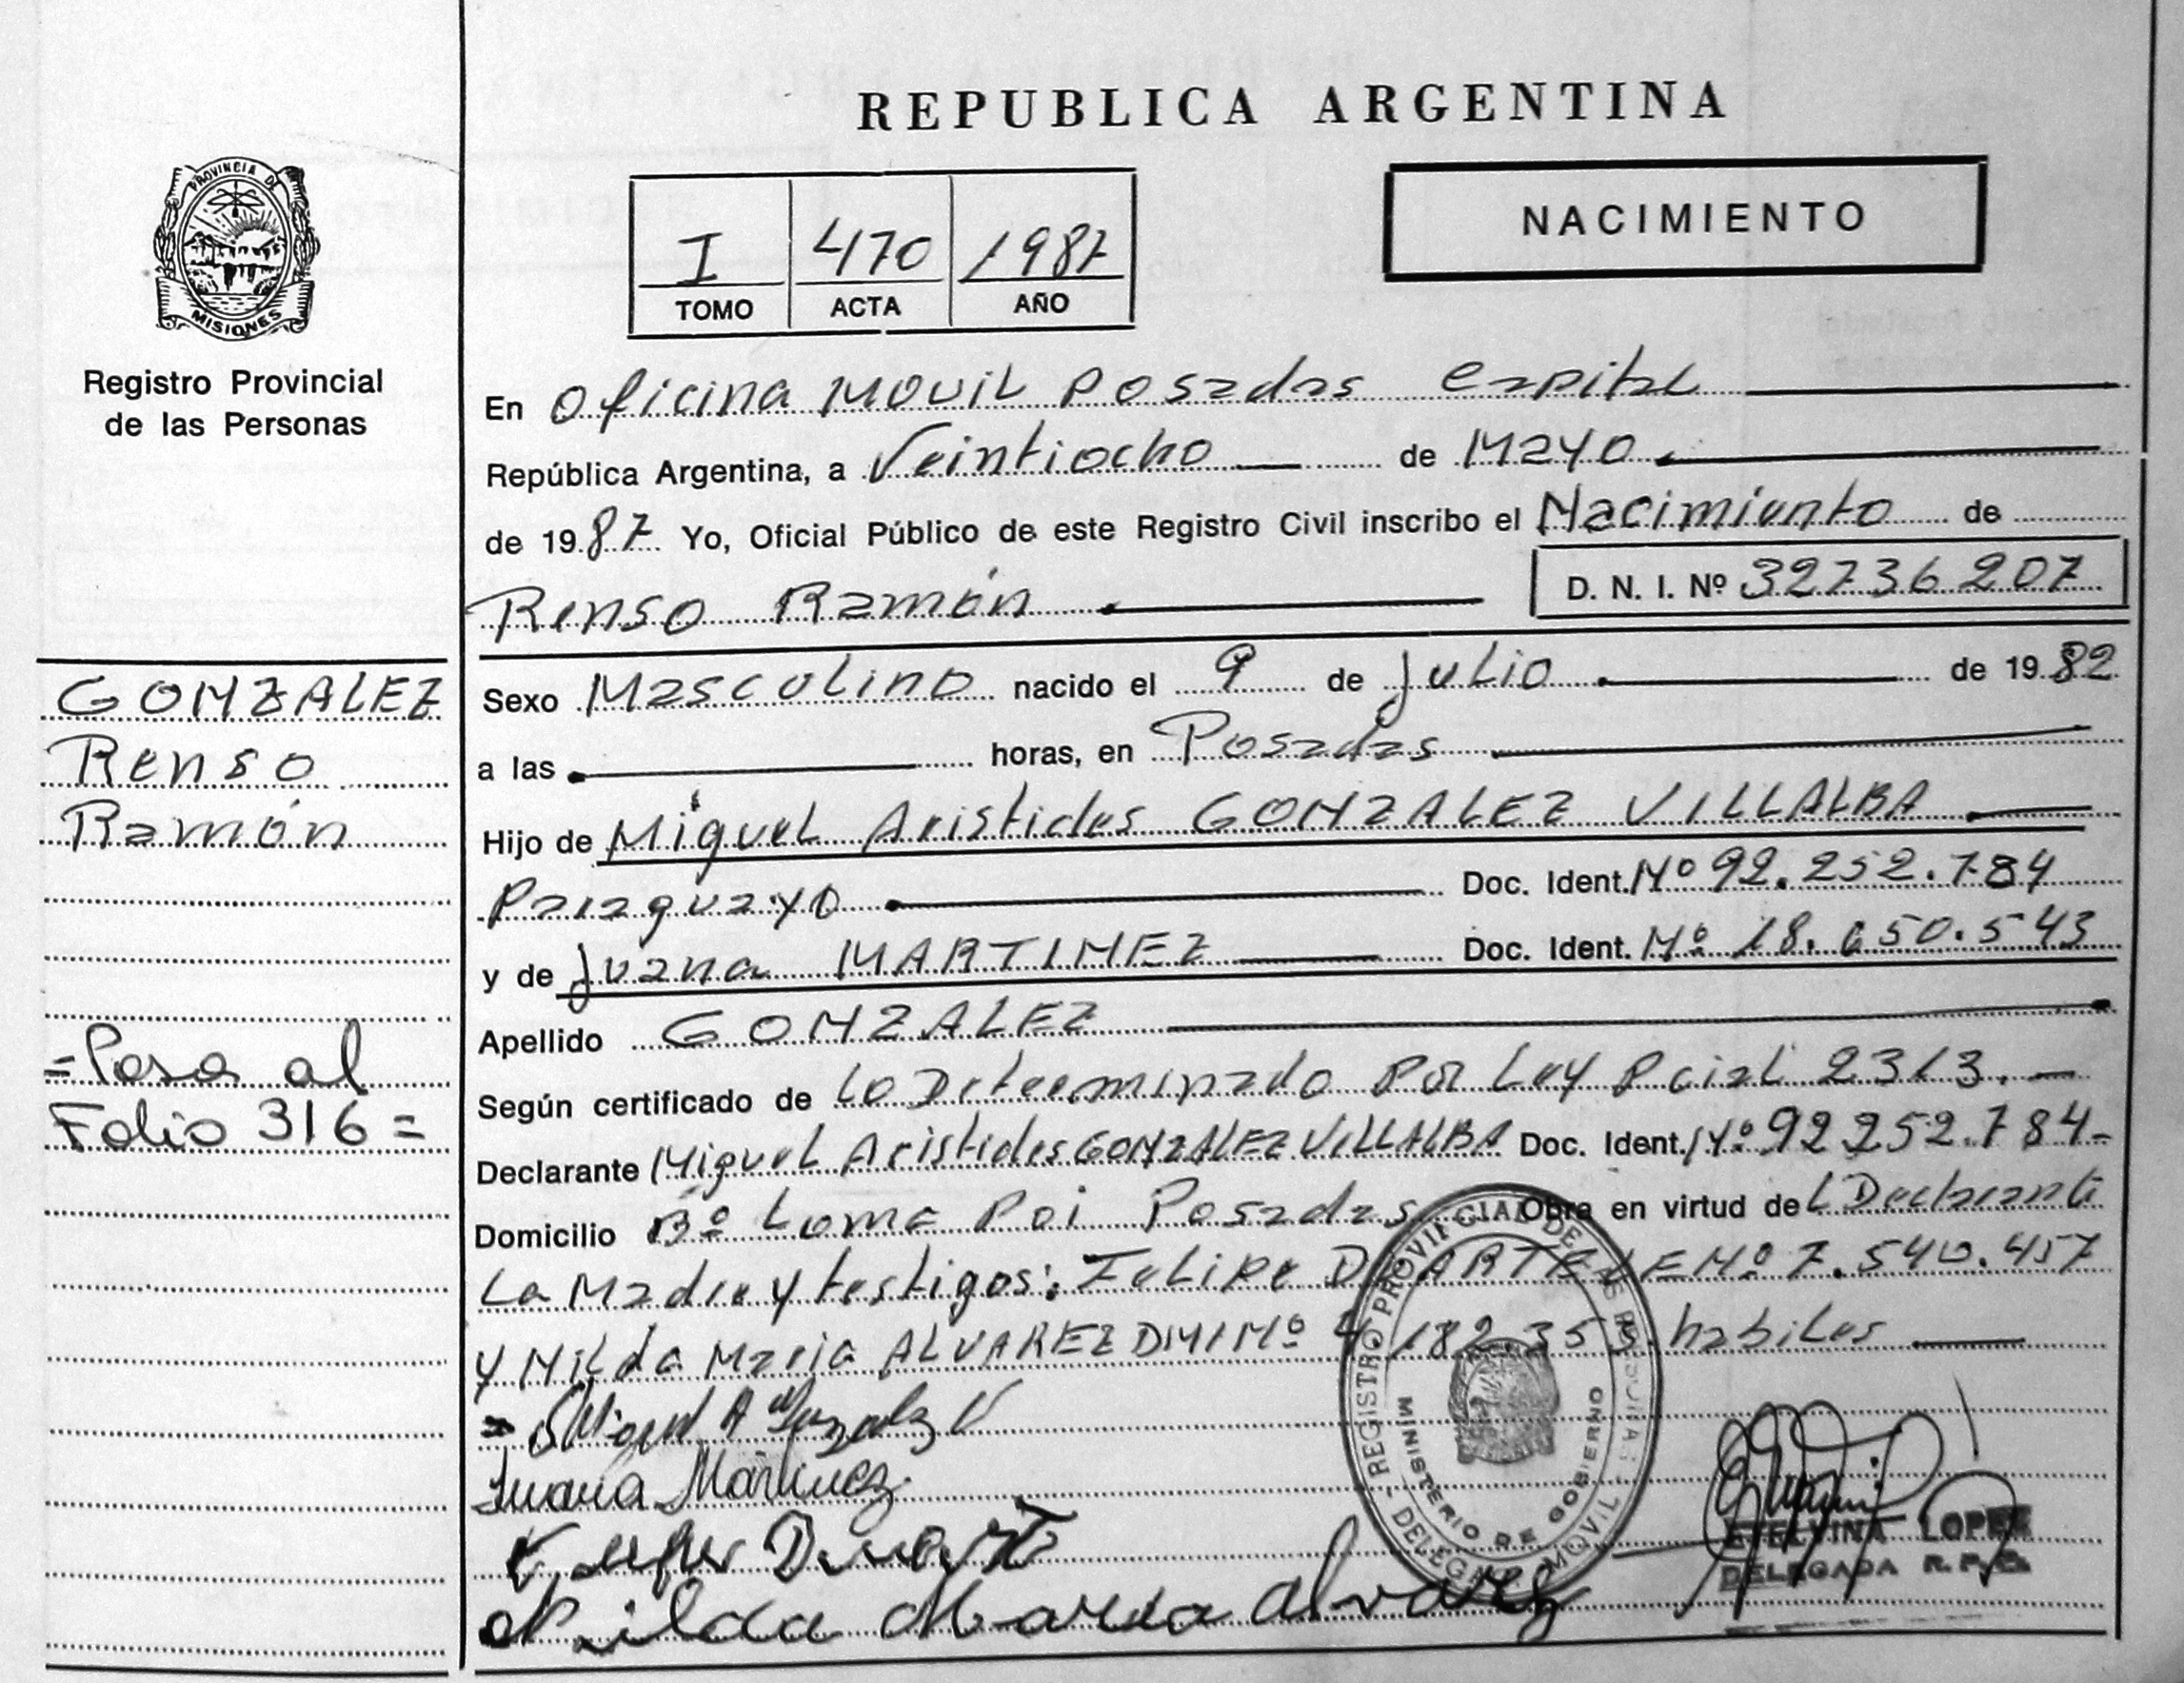 REPUBLICA ARGENTINA
PROVINCIA DE
MISIONES
Registro Provincial
de las Personas
I 470 1987
TOMO ACTA AÑO
NACIMIENTO
En Oficina Movil Posadas Capital
República Argentina, a Veintiocho de Mayo
de 1987 Yo, Oficial Público de este Registro Civil inscribo el Nacimiento de
Renso Ramón
D. N. I. Nº 32736207
GONZALEZ
Renso
Ramón
=Pasa al
Folio 316=
Sexo Masculino nacido el 9 de Julio de 1982
a las horas, en Posadas
Hijo de Miguel Aristides GONZALEZ VILLALBA
Paraguayo Doc. Ident. Nº 92.252.784
y de Juana MARTINEZ Doc. Ident. Nº 18.650.543
Apellido GONZALEZ
Según certificado de Lo Determinado Por Ley Pcial 2313.
Declarante Miguel Aristides GONZALEZ VILLALBA Doc. Ident. Nº 92252.784
Domicilio Bº Loma Poi Posadas Obra en virtud del Declarante
La Madre y testigos: Felipe DUARTE LE Nº 7.540.457
y Nilda Maria ALVAREZ DNI Nº 4.182.353. habiles
Miguel A Gonzalez V
Juana Martinez
Duarte
Nilda Maria Alvarez
REGISTRO PROVINCIAL DE LAS PERSONAS - DELEGAC. MOVIL
MINISTERIO DE GOBIERNO
ETELVINA LOPEZ
DELEGADA R.P.P.